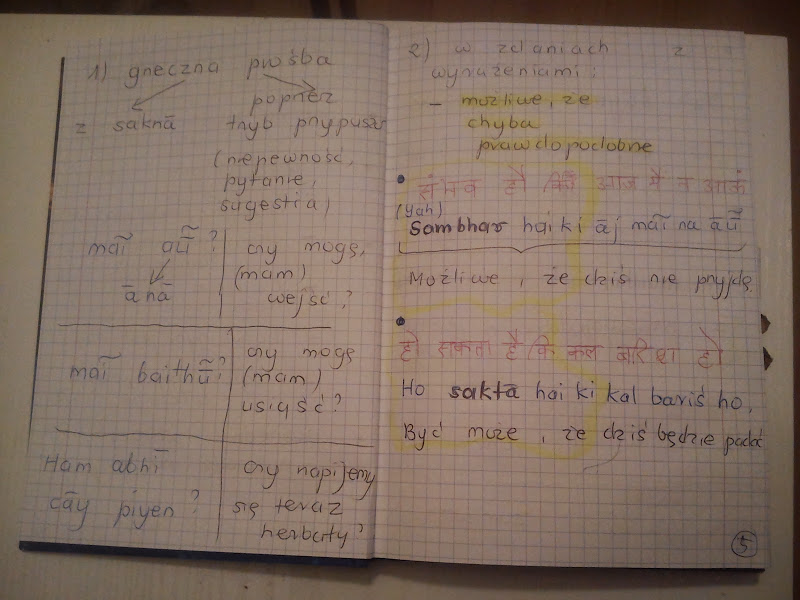 1) gneczna prośba
poprzez
z saknā tryb przypuszcz
(niepewność,
pytanie,
sugestia)
maĩ aũ̄ ? czy mogę,
(mam)
ānā wejść ?
maĩ baithũ̄? czy mogę
(mam)
usiąść ?
Ham abhī czy napijemy
cāy piyen ? się teraz
herbaty?
2) w zdaniach z
wyrażeniami :
- możliwe, że
chyba
prawdopodobne
संभव है कि आज मैं न आऊं
(Yah)
Sambhav hai ki āj maĩ na āũ̄
Możliwe, że dziś nie przyjdę.
हो सकता है कि कल बारिश हो
Ho saktā hai ki kal bariś ho,
Być może, że dziś będzie padać
5